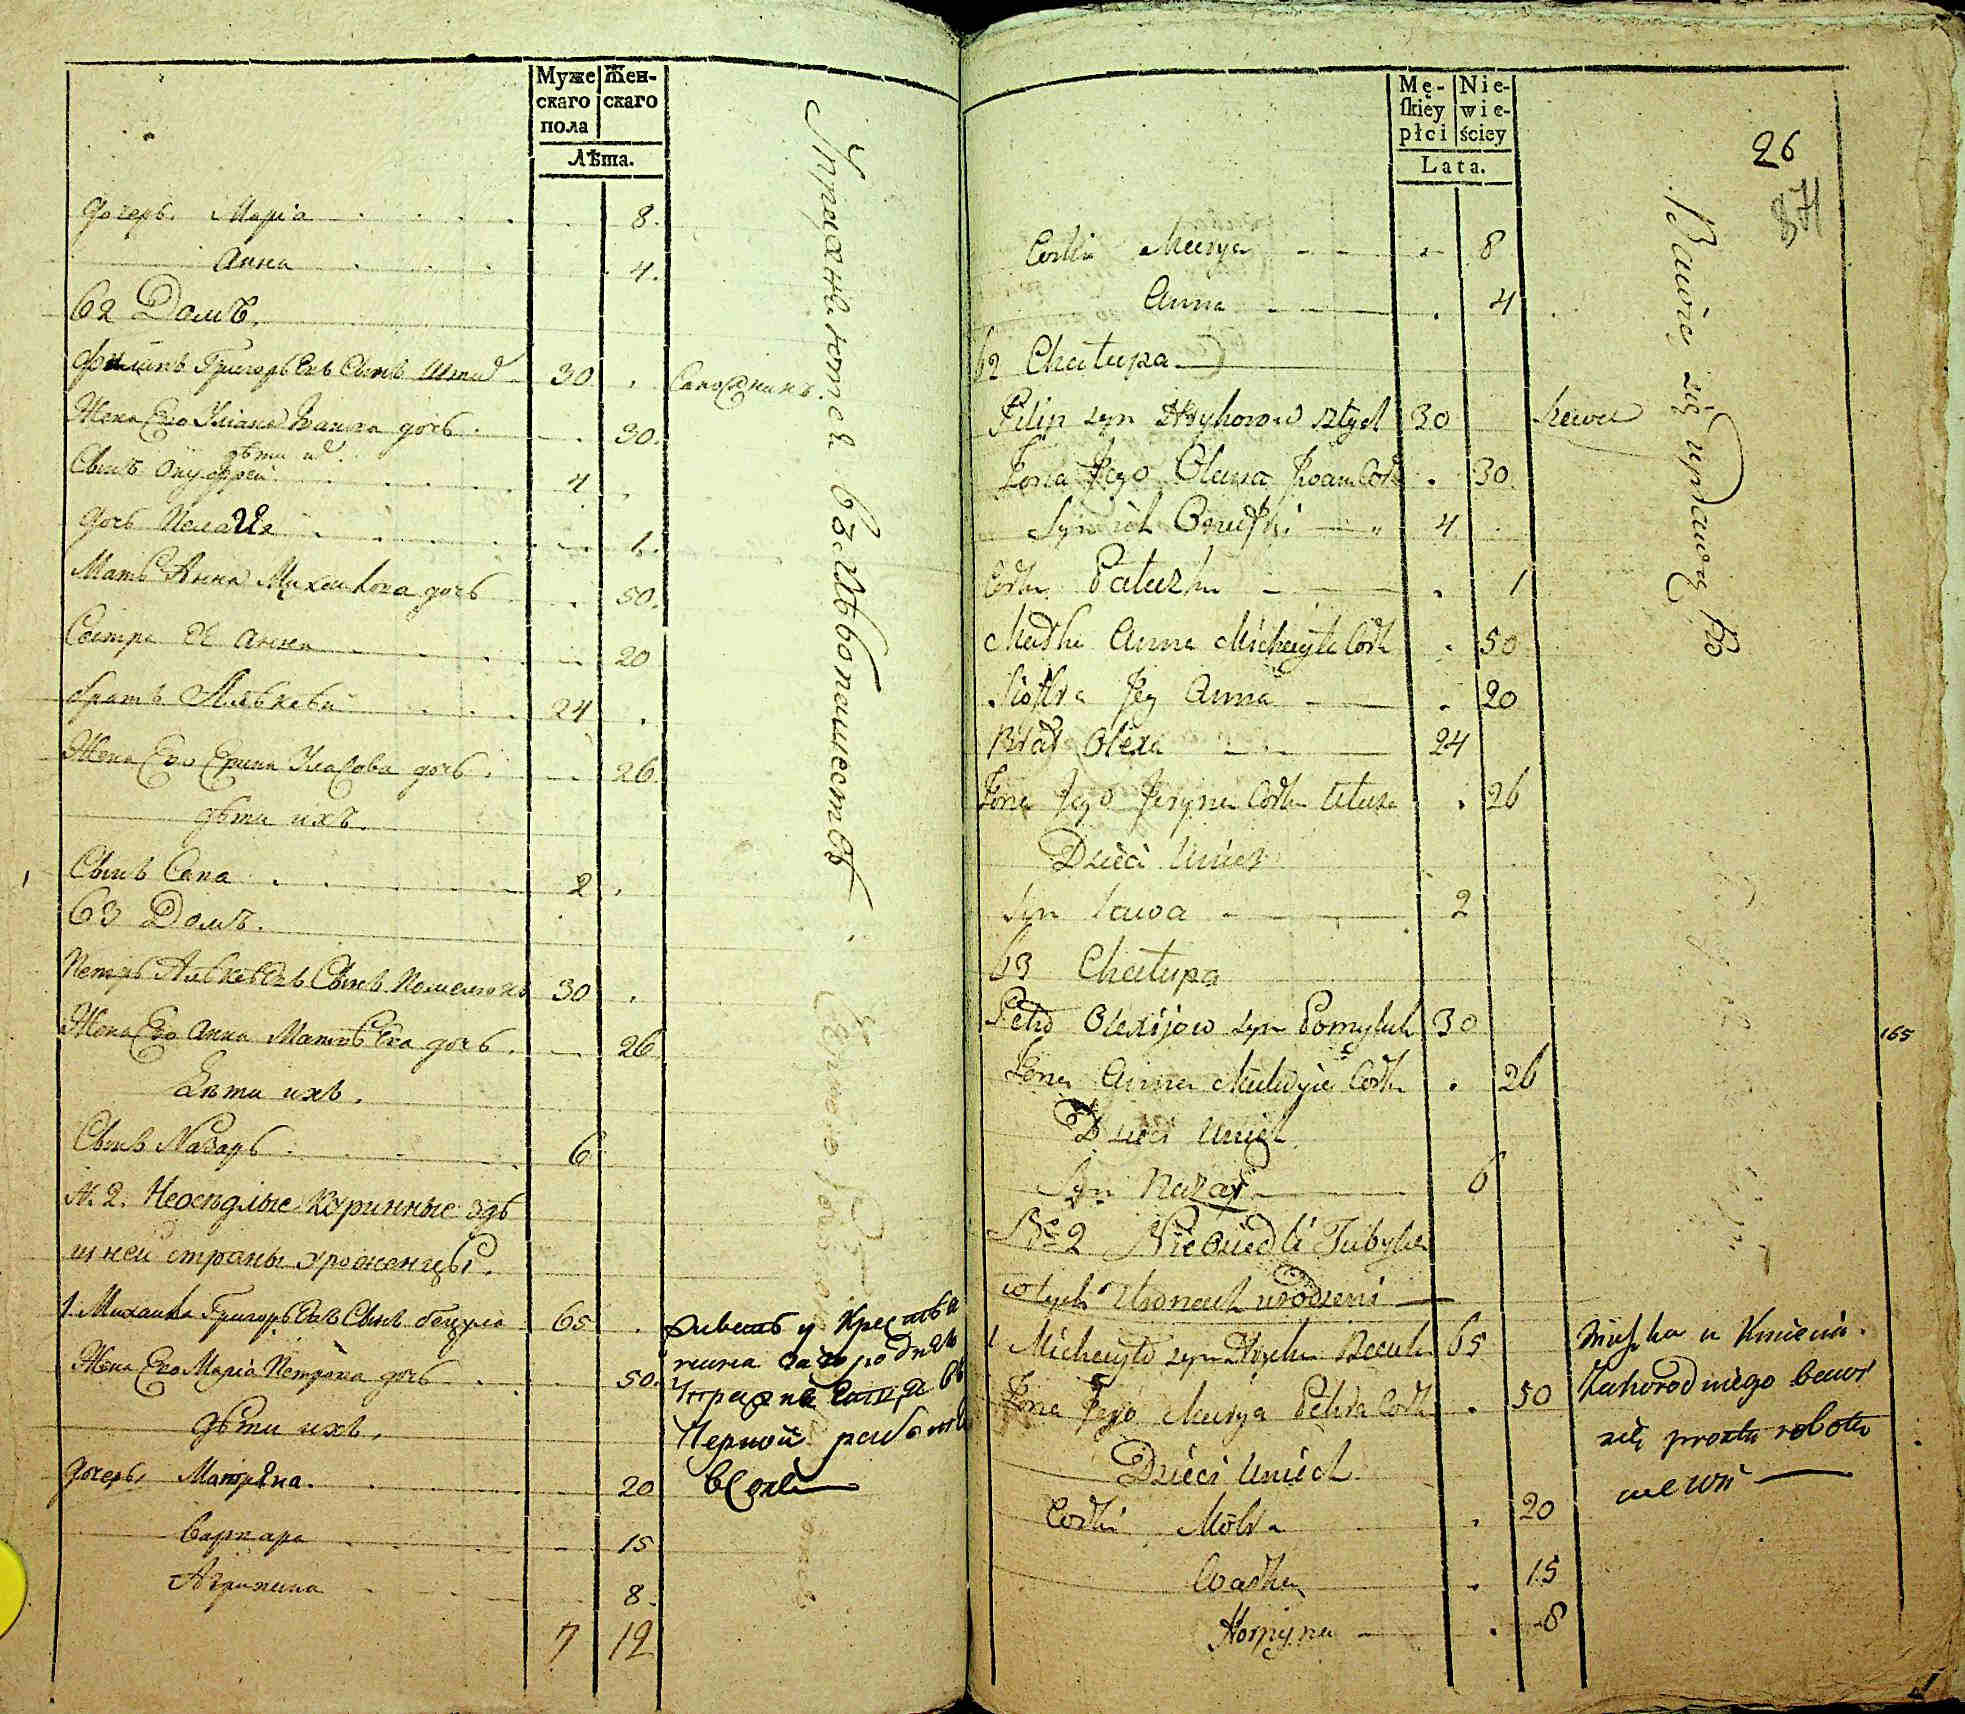 Муже
скаго
пола
Жен-
скаго
Лѣта.
дочерь Марiа 8.
Анна 4.
62 Домъ.
Филипъ Григорьевъ Сынъ Штид 30 Сапожникъ.
Жена Его Улiана Iванова дочь 30.
дѣти их
Сынъ Онуфрей 4
дочь Пелагея 1.
Мать Анна Михаилова дочь 50.
Сестра Ея Анна 20
братъ Алѣксѣй 24
Жена Его Ерина Уласова дочь 26.
дѣти ихъ.
Сынъ Сава 2
63 Домъ.
Петръ Алѣксѣевъ Сынъ 30
Жена Его Анна Матвѣева дочь 26
Дѣти ихъ.
Сынъ Назаръ 6
№ 2. Неосѣдлые здѣ
шней страны уроженцы.
1. Михаила Григорьевъ Сынъ бецула 65
Жена Его Марiа Петрова дочь 50.
дѣти ихъ,
дочерь, Матрѣна 20
Варвара 15
Агрипина 8.
7 12
Упражняются въ хлѣбопашествѣ
живетъ у Крестья
нина
Черной работѣ
Mę-
ſkiey
płci
Nie-
wie-
ściey
Lata.
26
Corki Marya 8
Anna 4
62 Chałupa
Filip syn Hryhorow sztyd 30 szewc
Żona Jego Olana Iwan. Cork 30
Syn ich Onufri 4
Corka Pałazka 1
Matka Anna Michayła Cork 50
Siostra Jey Anna 20
Brat Olexa 24
Żona Jego Jeryna Corka Ułasa 26
Dzieci Unich
Syn Sawa 2
63 Chałupa
Petro Olexijow syn Pomyluk 30
Żona Anna Matwyja Corka 26
Dzieci Unich
Syn Nazar 6
No 2 Nieosiedli Tubylce
w tych Stronach urodzeni
1 Michayło syn Hryha Becuła 65
Żona Jego Marya Petra Cork 50
Dzieci Unich
Corki Motra 20
Warka 15
Horpyna 8
Bawią się uprawą
Mieszka u Kmiecia
Zahorodniego bawi
się prostą robotą
we wsi
165